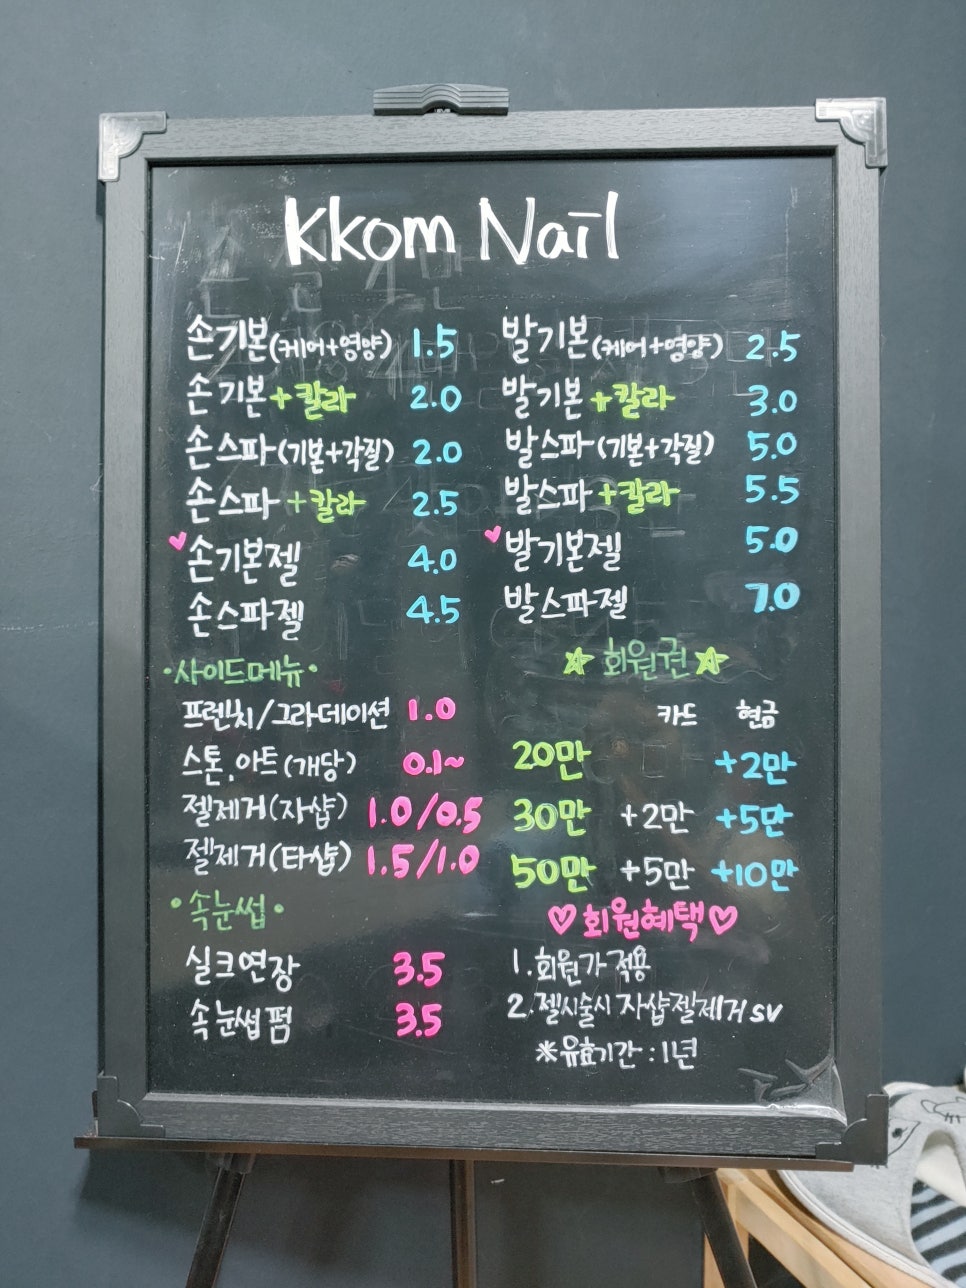 Kkom Nail
손기본(케어+영양) 1.5
손기본+칼라 2.0
손스파(기본+각질) 2.0
손스파+칼라 2.5
♥손기본젤 4.0
손스파젤 4.5
·사이드메뉴·
프렌치/그라데이션 1.0
스톤.아트(개당) 0.1~
젤제거(자샵) 1.0/0.5
젤제거(타샵) 1.5/1.0
·속눈썹·
실크연장 3.5
속눈썹펌 3.5
발기본(케어+영양) 2.5
발기본+칼라 3.0
발스파(기본+각질) 5.0
발스파+칼라 5.5
♥발기본젤 5.0
발스파젤 7.0
☆회원권☆
카드 현금
20만 +2만
30만 +2만 +5만
50만 +5만 +10만
♡회원혜택♡
1.회원가적용
2.젤시술시 자샵젤제거 SV
*유효기간:1년